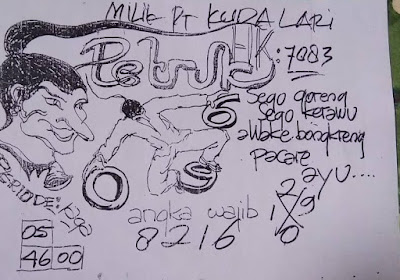 MILIK PT KUDA LARI
Petruk HK: 7083
6
Sego goreng
Sego kerawu
awake bongkreng
pacare
ayu....
0 9
PERIODE:
angka wajib
8216
2
1 X 9
0
05
46 00